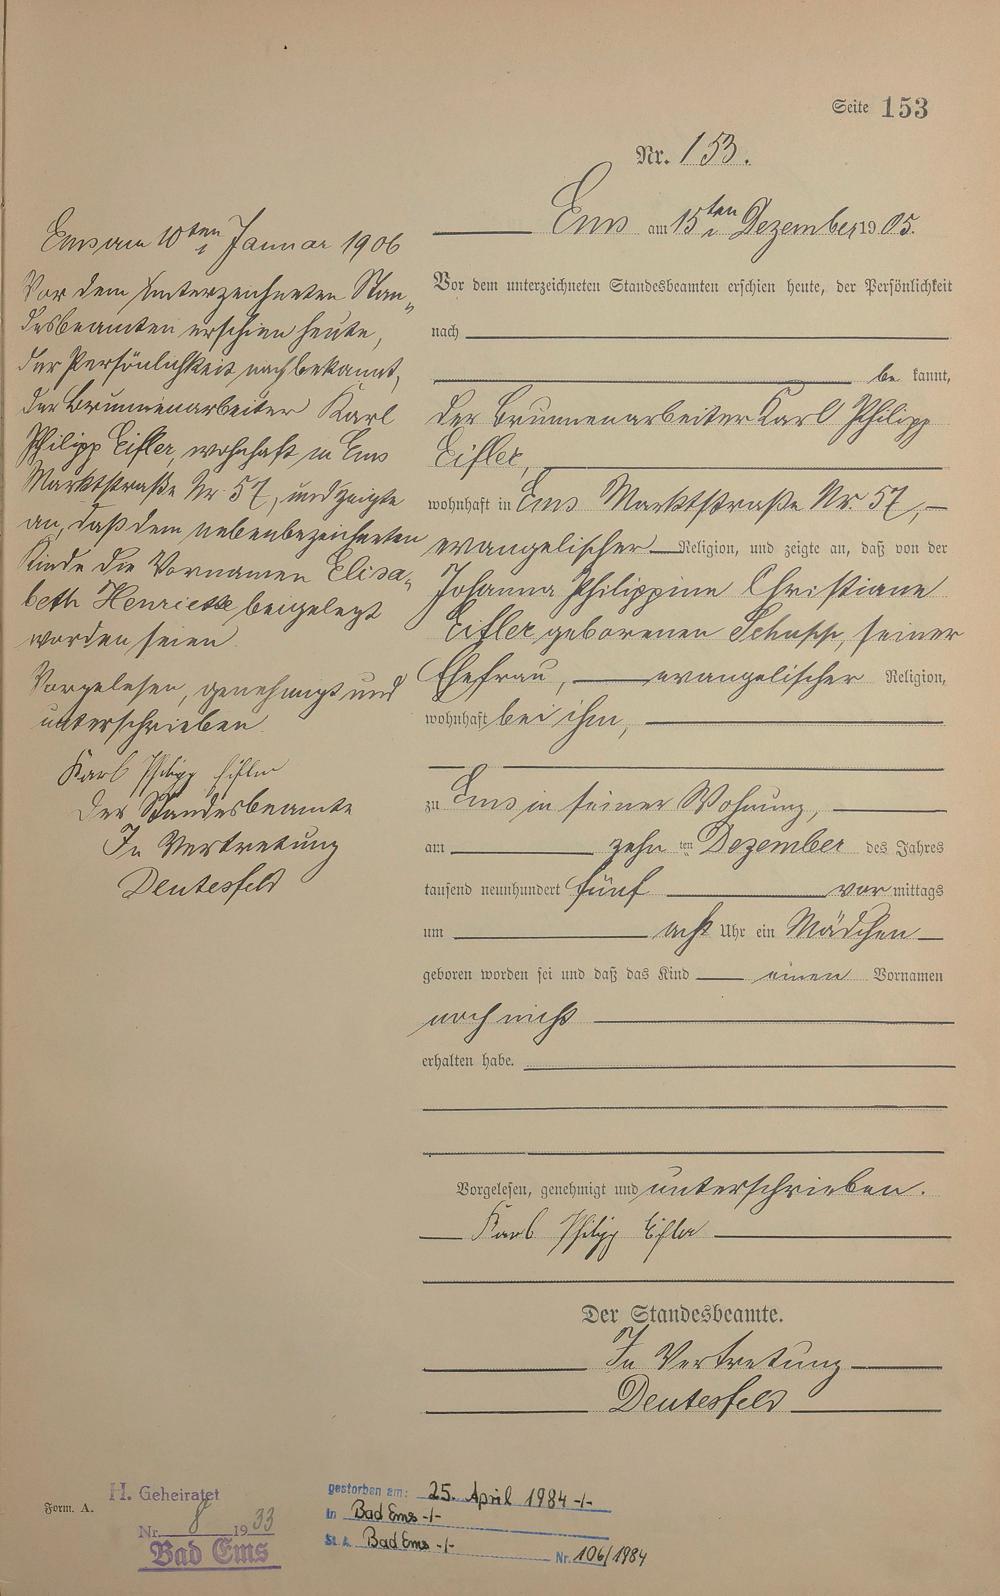 Seite 153
Nr. 153.
Ems am 15ten Dezember 1905.
Vor dem unterzeichneten Standesbeamten erschien heute, der Persönlichkeit
nach
be kannt,
der Brunnenarbeiter Karl Philipp
Eifler,
wohnhaft in Ems Marktstraße Nr. 57,
evangelischer Religion, und zeigte an, daß von der
Johanna Philippine Christiane
Eifler geborenen Schupp, seiner
Ehefrau, evangelischer Religion,
wohnhaft bei ihm,
zu Ems in seiner Wohnung,
am zehn ten Dezember des Jahres
tausend neunhundert fünf vor mittags
um acht Uhr ein Mädchen
geboren worden sei und daß das Kind einen Vornamen
noch nicht
erhalten habe.
Vorgelesen, genehmigt und unterschrieben.
Karl Philipp Eifler
Der Standesbeamte.
In Vertretung
Deutesfeld
Ems am 10ten Januar 1906
Vor dem unterzeichneten Stan-
desbeamten erschien heute,
der Persönlichkeit nach bekannt,
der Brunnenarbeiter Karl
Philipp Eifler, wohnhaft in Ems
Marktstraße Nr 57, und zeigte
an, daß dem nebenbezeichneten
Kinde die Vornamen Elisa-
beth Henriette beigelegt
worden seien
Vorgelesen, genehmigt und
unterschrieben
Karl Philipp Eifler
Der Standesbeamte
In Vertretung
Deutesfeld
Form. A.
H. Geheiratet
Nr. 8 1933
Bad Ems
gestorben am: 25. April 1984 -/-
in Bad Ems -/-
St. A. Bad Ems -/-
Nr. 106/1984